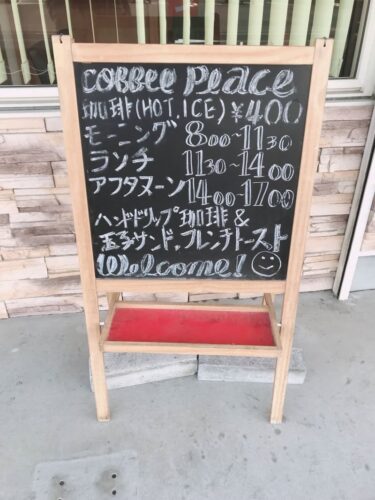 coffee peace
珈琲(HOT,ICE) ¥400
モーニング 8:00~11:30
ランチ 11:30~14:00
アフタヌーン 14:00~17:00
ハンドドリップ珈琲 &
玉子サンド,フレンチトースト
Welcome!